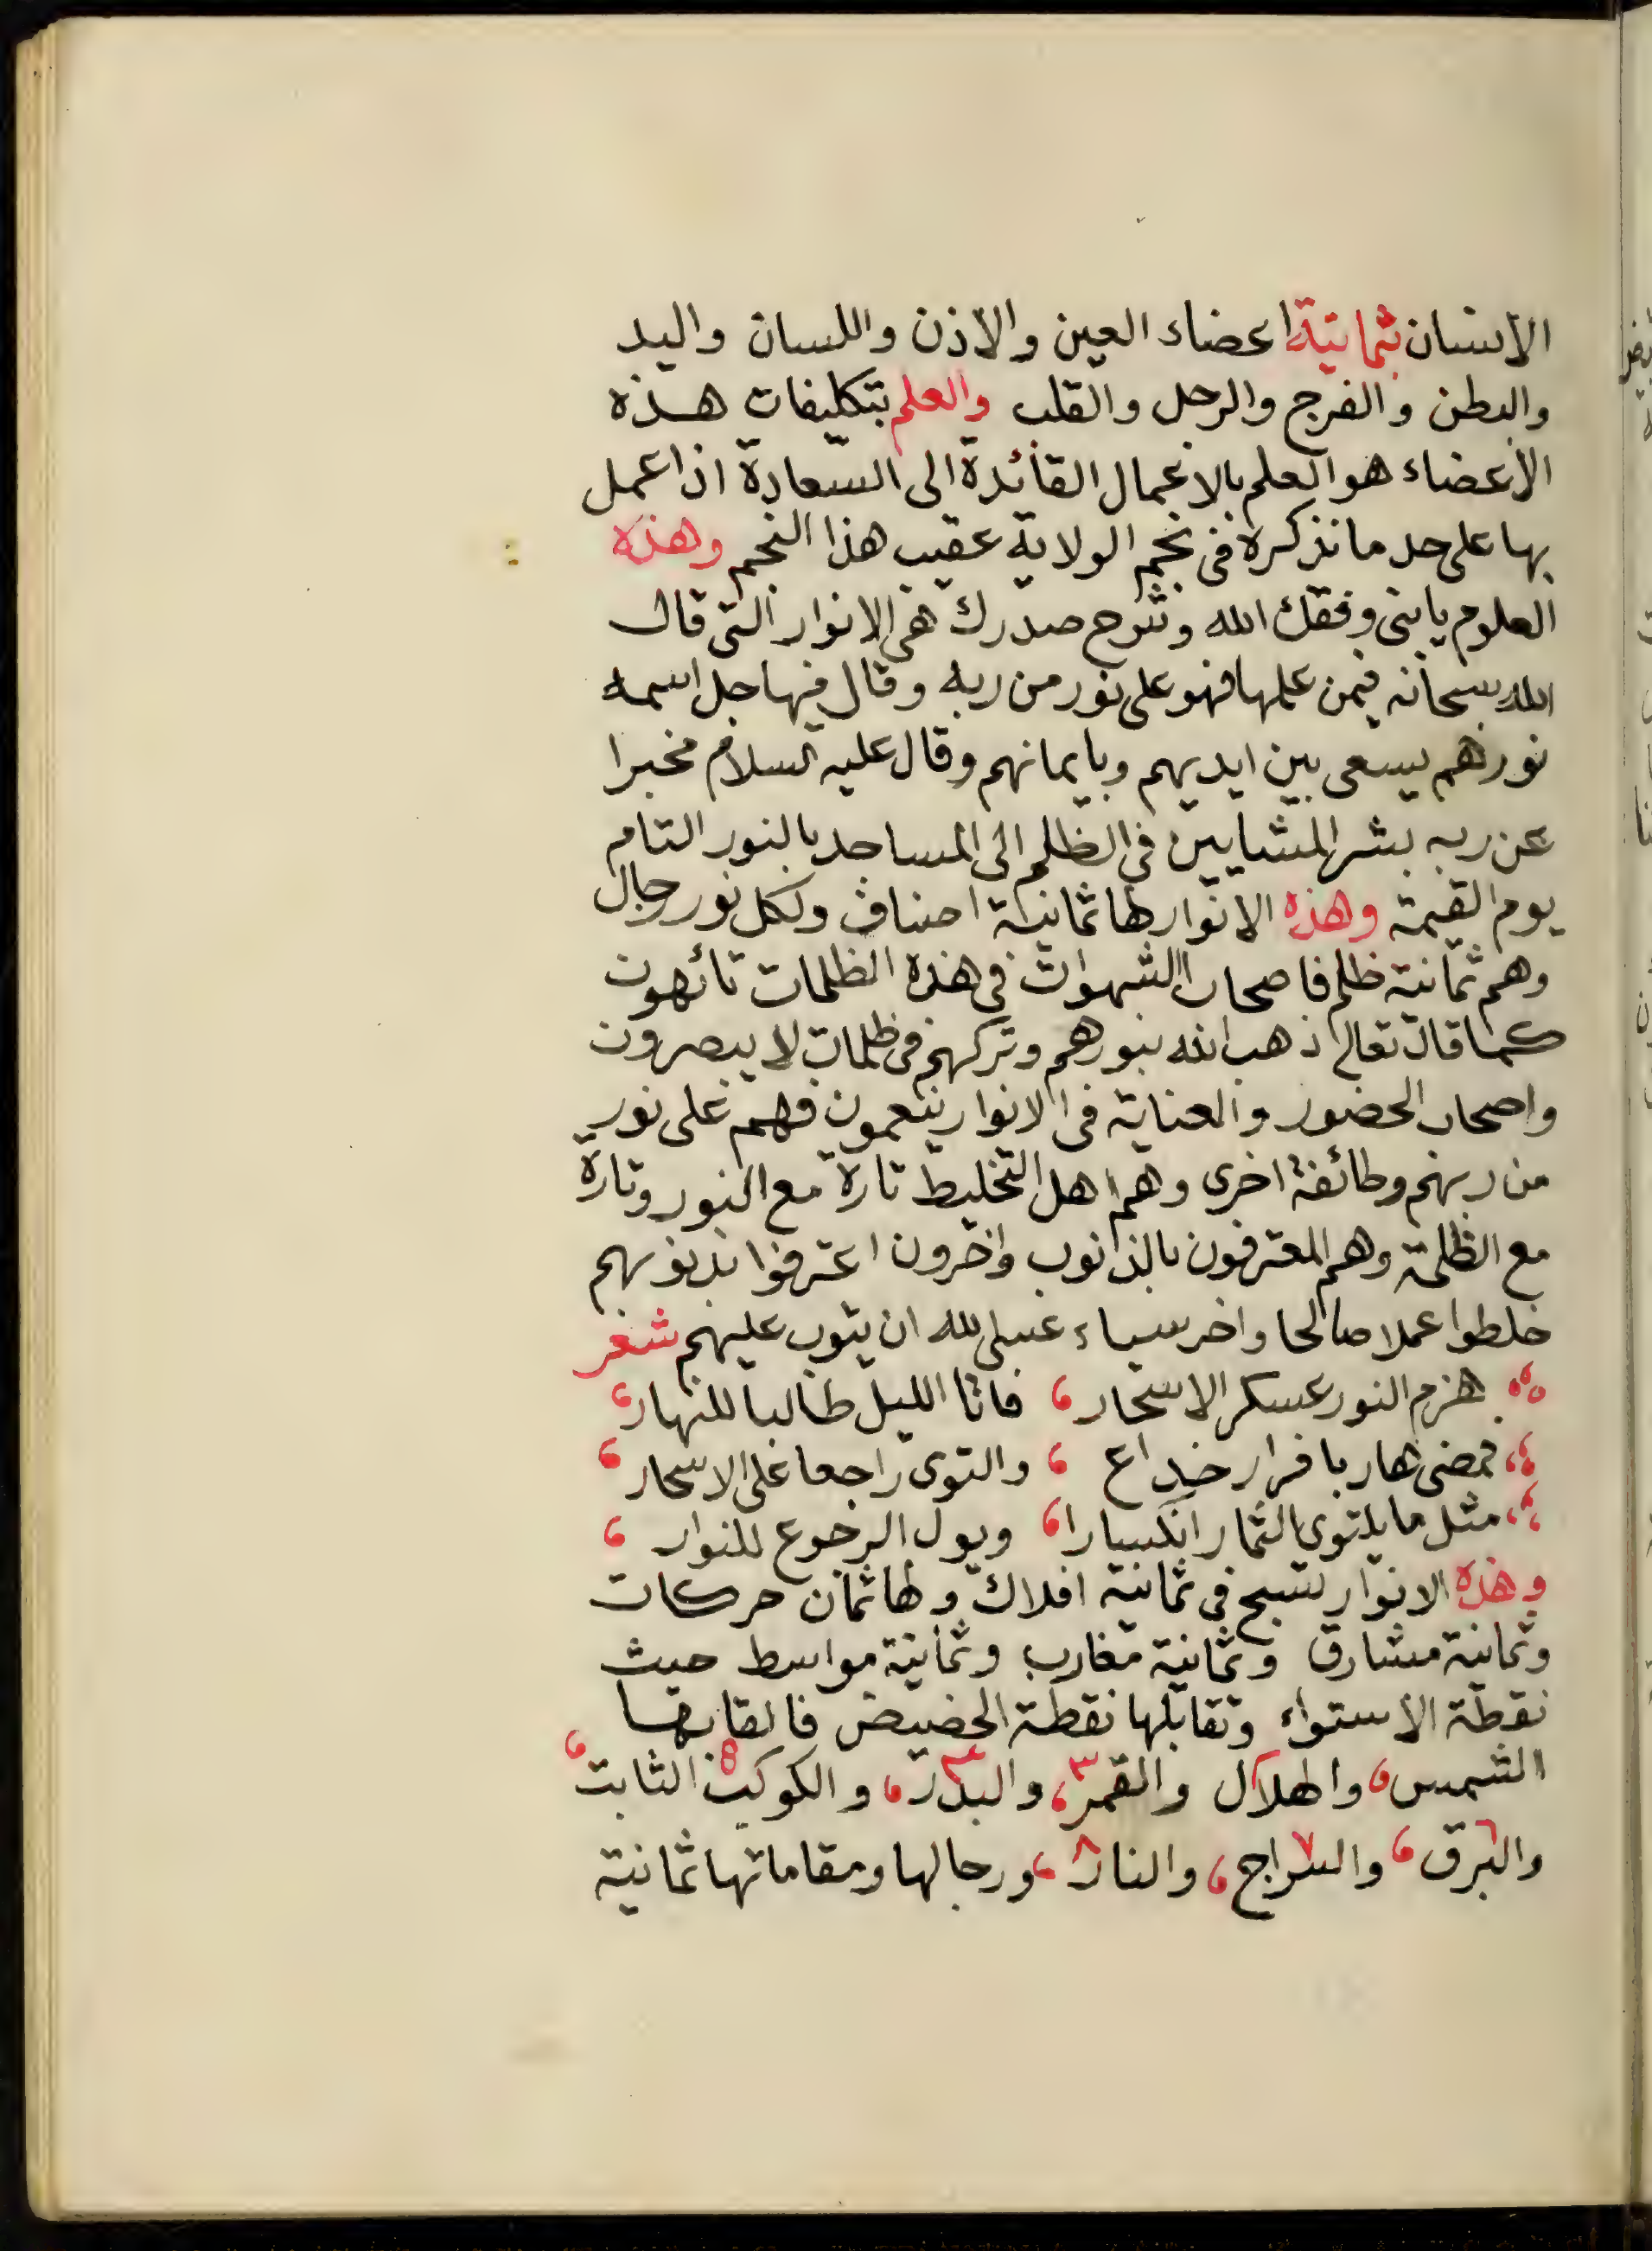 الانسان ثمانية اعضاء العين والاذن واللسان واليد
والبطن والفرج والرجل والقلب والعلم بتكليفات هذه
الاعضاء هو العلم بالاعمال القائدة الى السعادة اذا عمل
بها على حد ما نذكره فى نجم الولاية عقيب هذا النجم وهذه
العلوم يا بنى وفقك الله وشرح صدرك هى الانوار التى قال
الله سبحانه فيمن علمها فهو على نور من ربه وقال فيها جل اسمه
نورهم يسعى بين ايديهم وبايمانهم وقال عليه السلام مخبرا
عن ربه بشر المشايين فى الظلم الى المساجد بالنور التام
يوم القيمة وهذه الانوار لها ثمانية اصناف ولكل نور رجال
وهم ثمانية ظلم فاصحاب الشهوات فى هذه الظلمات تائهون
كما قال تعالى ذهب الله بنورهم وتركهم فى ظلمات لا يبصرون
واصحاب الحضور والعناية فى الانوار يتنعمون فهم على نور
من ربهم وطائفة اخرى وهم اهل التخليط تارة مع النور وتارة
مع الظلمة وهم المعترفون بالذنوب واخرون اعترفوا بذنوبهم
خلطوا عملا صالحا واخر سياء عسى الله ان يتوب عليهم شعر
هزم النور عسكر الاسحار ، فاتا الليل طالبا للنهار ،
فمضى هاربا فرار خداع ، والتوى راجعا على الاسحار ،
مثل ما يلتوى الثمار انكسارا ، ويول الرجوع للنوار ،
وهذه الانوار تسبح فى ثمانية افلاك ولها ثمان حركات
وثمانية مشارق وثمانية مغارب وثمانية مواسط حيث
نقطة الاستواء وتقابلها نقطة الحضيض فالقابها
الشمس ، والهلال والقمر ٣ ، والبدر ٤ ، والكوكب ٥ الثابت ،
والبرق ٦ ، والسراج ٧ ، والنار ٨ ، ورجالها ومقاماتها ثمانية